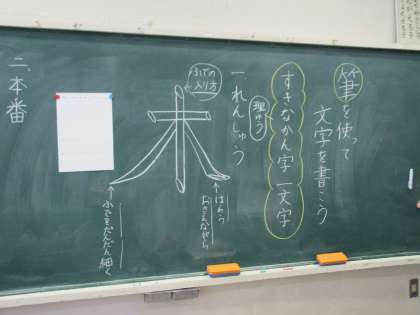 筆を使って
文字を書こう
すきなかん字 一文字
理ゆう
一 れんしゅう
ふでの
入り方
木
はらう
おさえながら
ふでをだんだん細く
二、本番